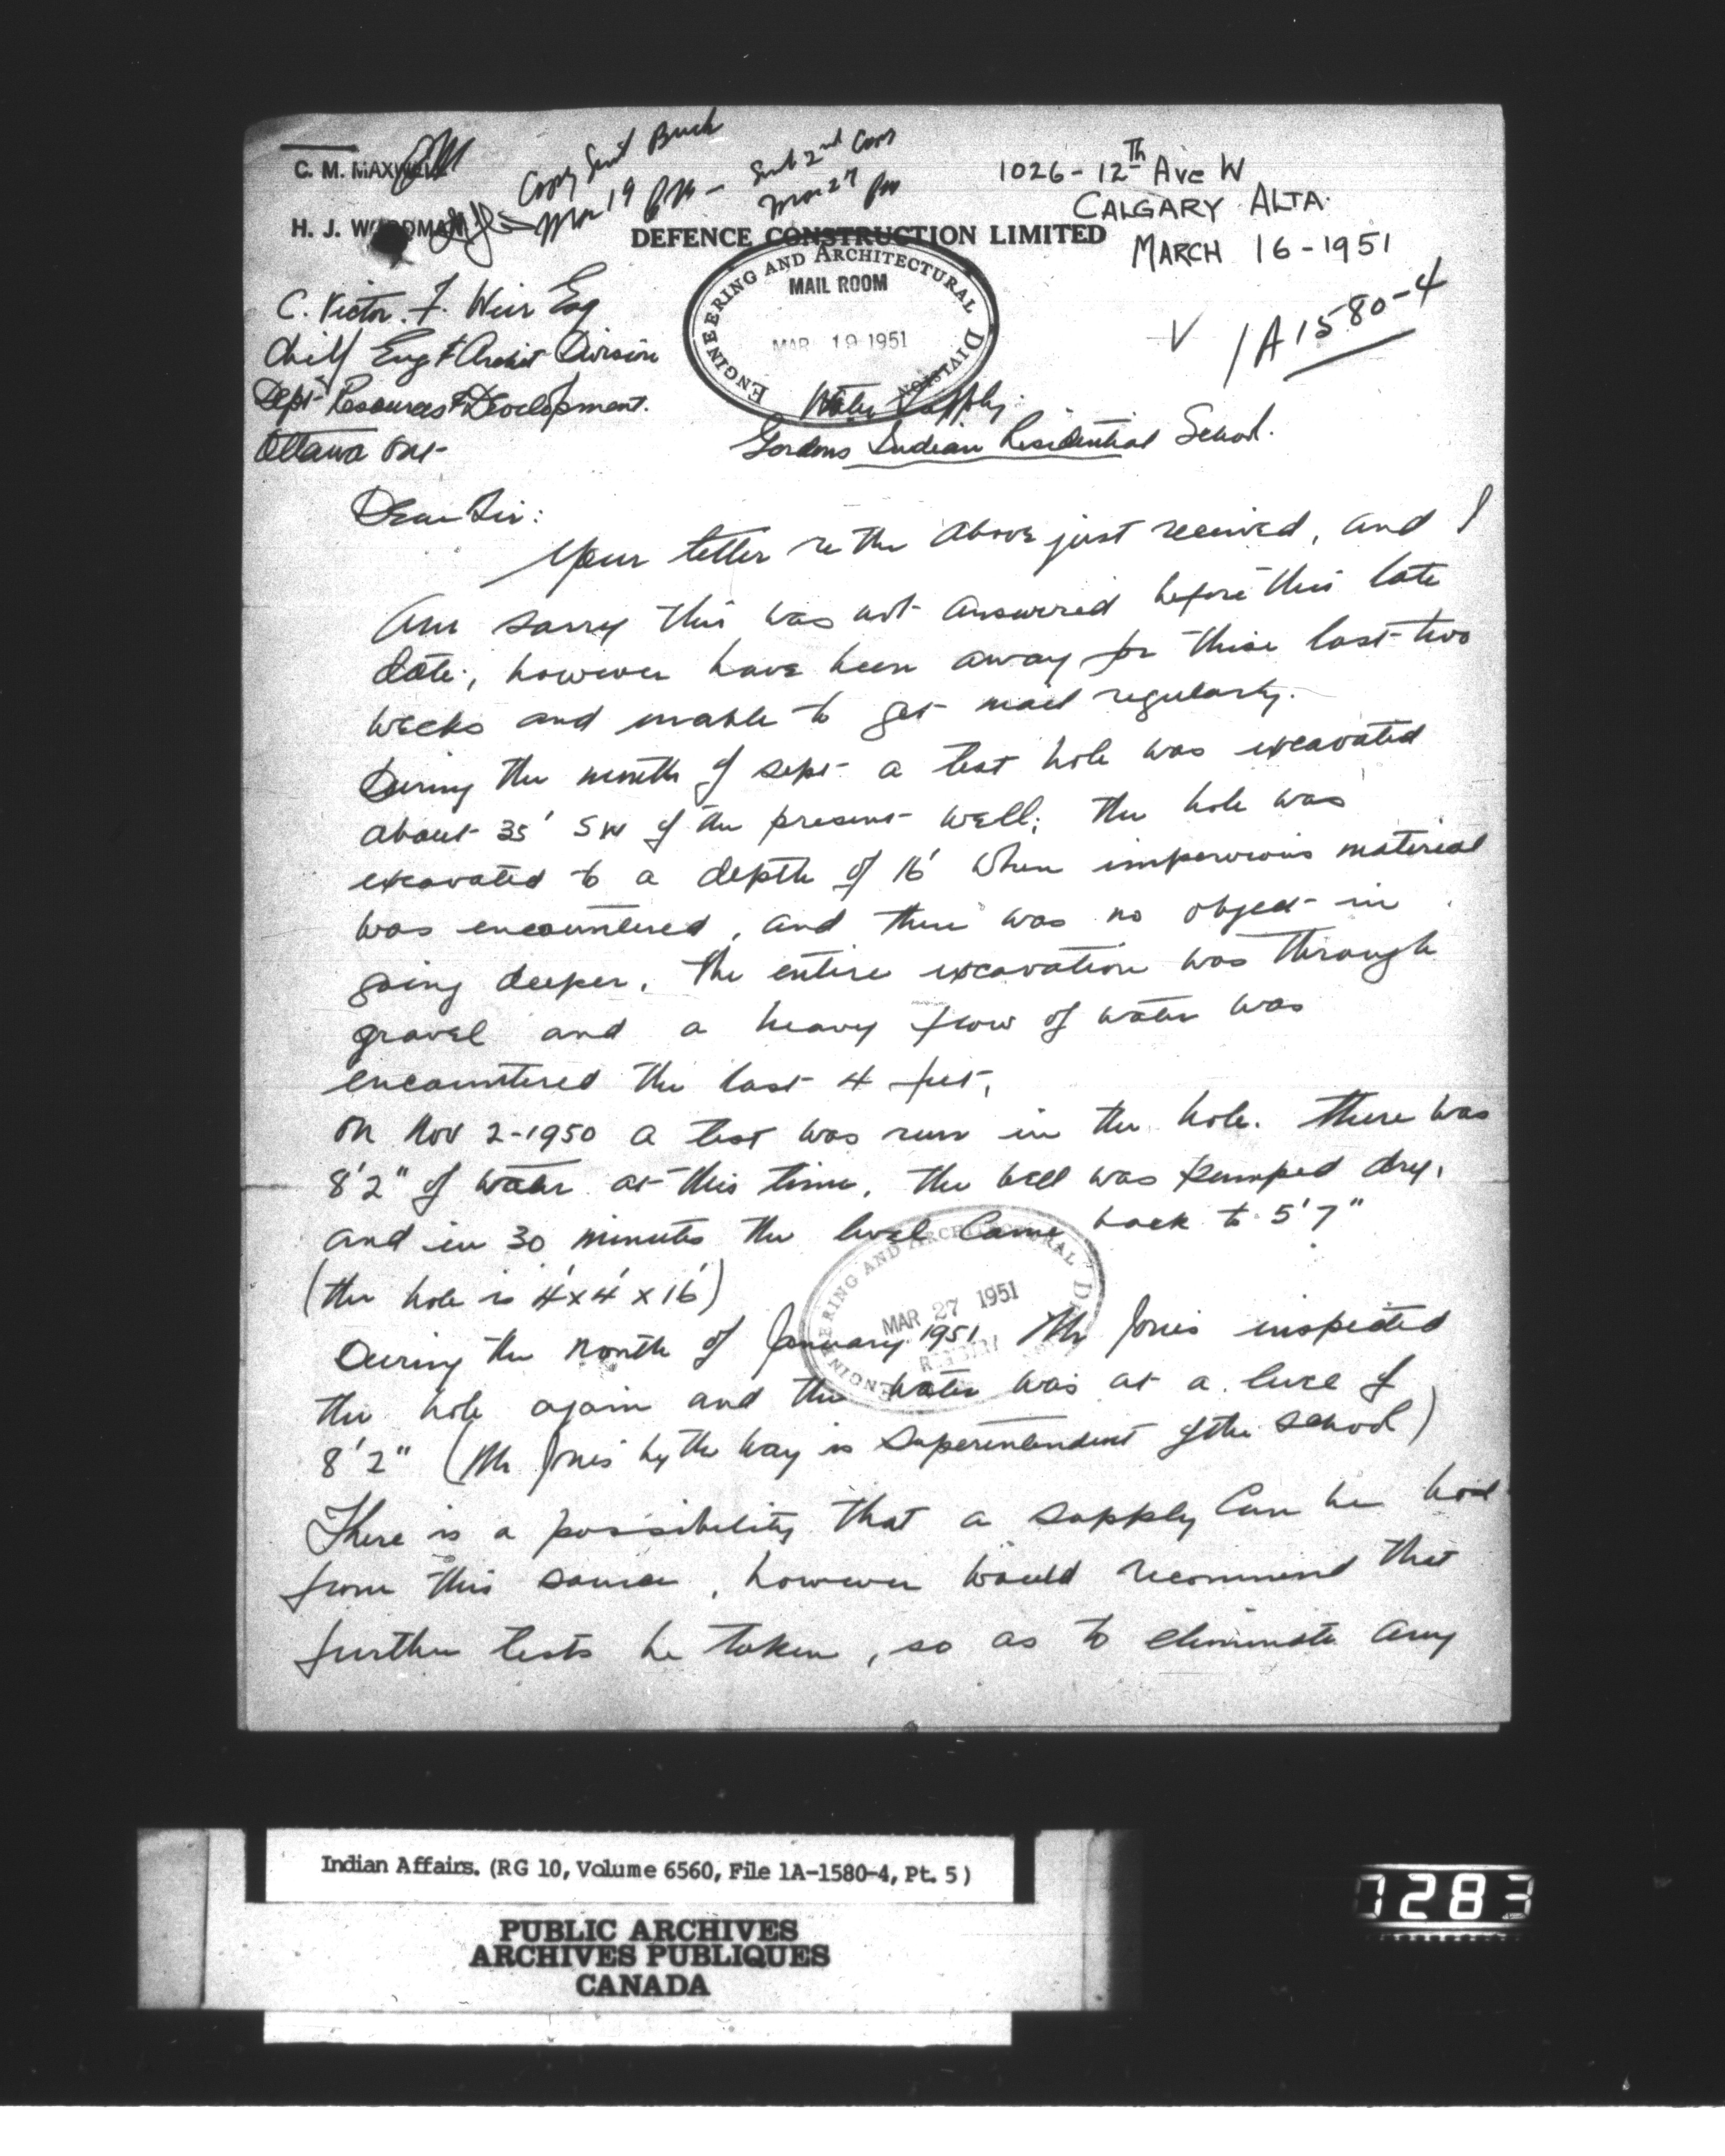 C. M. MAXWELL
Copy Sent Buck
Mar 19 PM - Sent 2nd Copy
Mar 27 PM
1026-12th Ave W
CALGARY ALTA.
H. J. WOODMAN
DEFENCE CONSTRUCTION LIMITED
MARCH 16-1951
ENGINEERING AND ARCHITECTURAL DIVISION
MAIL ROOM
MAR 19 1951
1A1580-4
C. Victor. F. Weir Esq
Chief Eng & Archit Division
Dept Resources & Development.
Ottawa Ont
Water Supply
Gordons Indian Residential School.
Dear Sir:
Your letter re the above just received, and I
am sorry this was not answered before this late
date, however have been away for these last two
weeks and unable to get mail regularly.
During the month of sept a test hole was excavated
about 35' SW of the present well; the hole was
excavated to a depth of 16' when impervious material
was encountered, and there was no object in
going deeper. The entire excavation was through
gravel and a heavy flow of water was
encountered the last 4 feet.
On Nov 2-1950 a test was run in the hole. There was
8'2" of water at this time. The well was pumped dry,
and in 30 minutes the level came back to 5'7"
(the hole is 4'x4'x16')
ENGINEERING AND ARCHITECTURAL
MAR 27 1951
During the month of January 1951 Mr Jones inspected
the hole again and the water was at a level of
8'2" (Mr Jones by the way is Superintendent of the school)
There is a possibility that a supply can be had
from this source, however would recommend that
further tests be taken, so as to eliminate any
Indian Affairs. (RG 10, Volume 6560, File 1A-1580-4, Pt. 5)
PUBLIC ARCHIVES
ARCHIVES PUBLIQUES
CANADA
7283